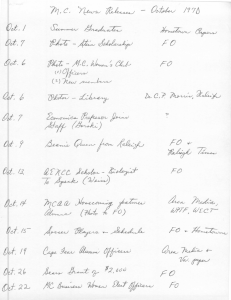 M.C. News Releases - October 1970
Oct. 1 Summer Graduates Hometown Papers
Oct. 7 Photo - Stein Scholarship FO
Oct. 6 Photo - M.C. Women's Club FO
(1) Officers
(2) New members
Oct. 6 Photos - Library Dr. C.F. Raleigh
Oct. 7 Economics Professor Joins "
Staff
Oct. 9 Queen from Raleigh FO +
Raleigh Times
Oct. 12 Scholar - Biologist FO
To Speak
Oct. 14 Homecoming features Area Media,
Alumni (Photo to FO) WPTF, WECT
Oct. 15 Soccer Players + Schedule FO + Hometowns
Oct. 19 Cape Fear Alumni Officers Area Media +
papers
Oct. 26 Sears Grant of $2,600 FO
Oct. 22 MC Business Women Elect Officers FO